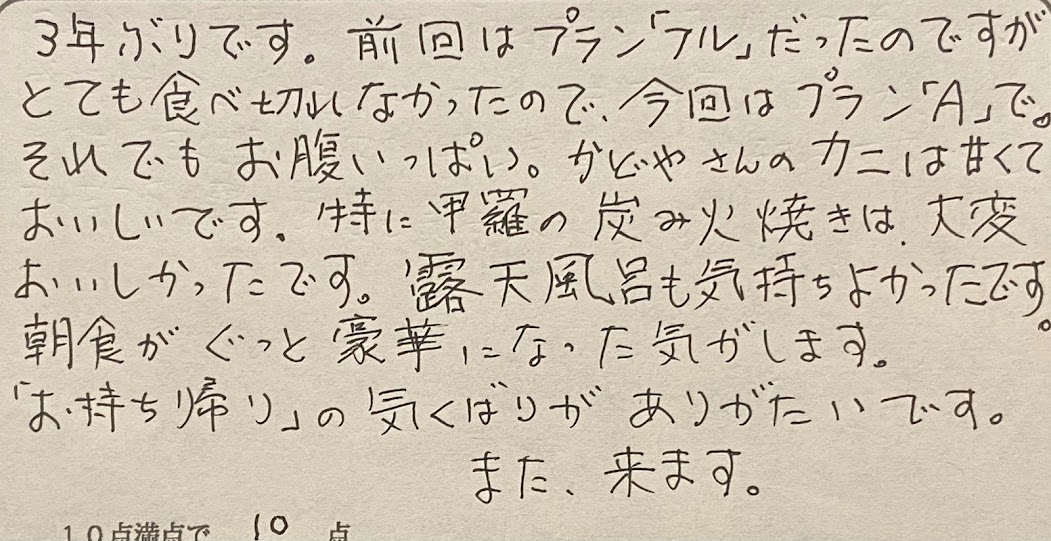 3年ぶりです。前回はプラン「フル」だったのですが
とても食べ切れなかったので、今回はプラン「A」で。
それでもお腹いっぱい。かどやさんのカニは甘くて
おいしいです。特に甲羅の炭み火焼きは、大変
おいしかったです。露天風呂も気持ちよかったです。
朝食がぐっと豪華になった気がします。
「お持ち帰り」の気くばりがありがたいです。
また、来ます。
10点満点で 10 点